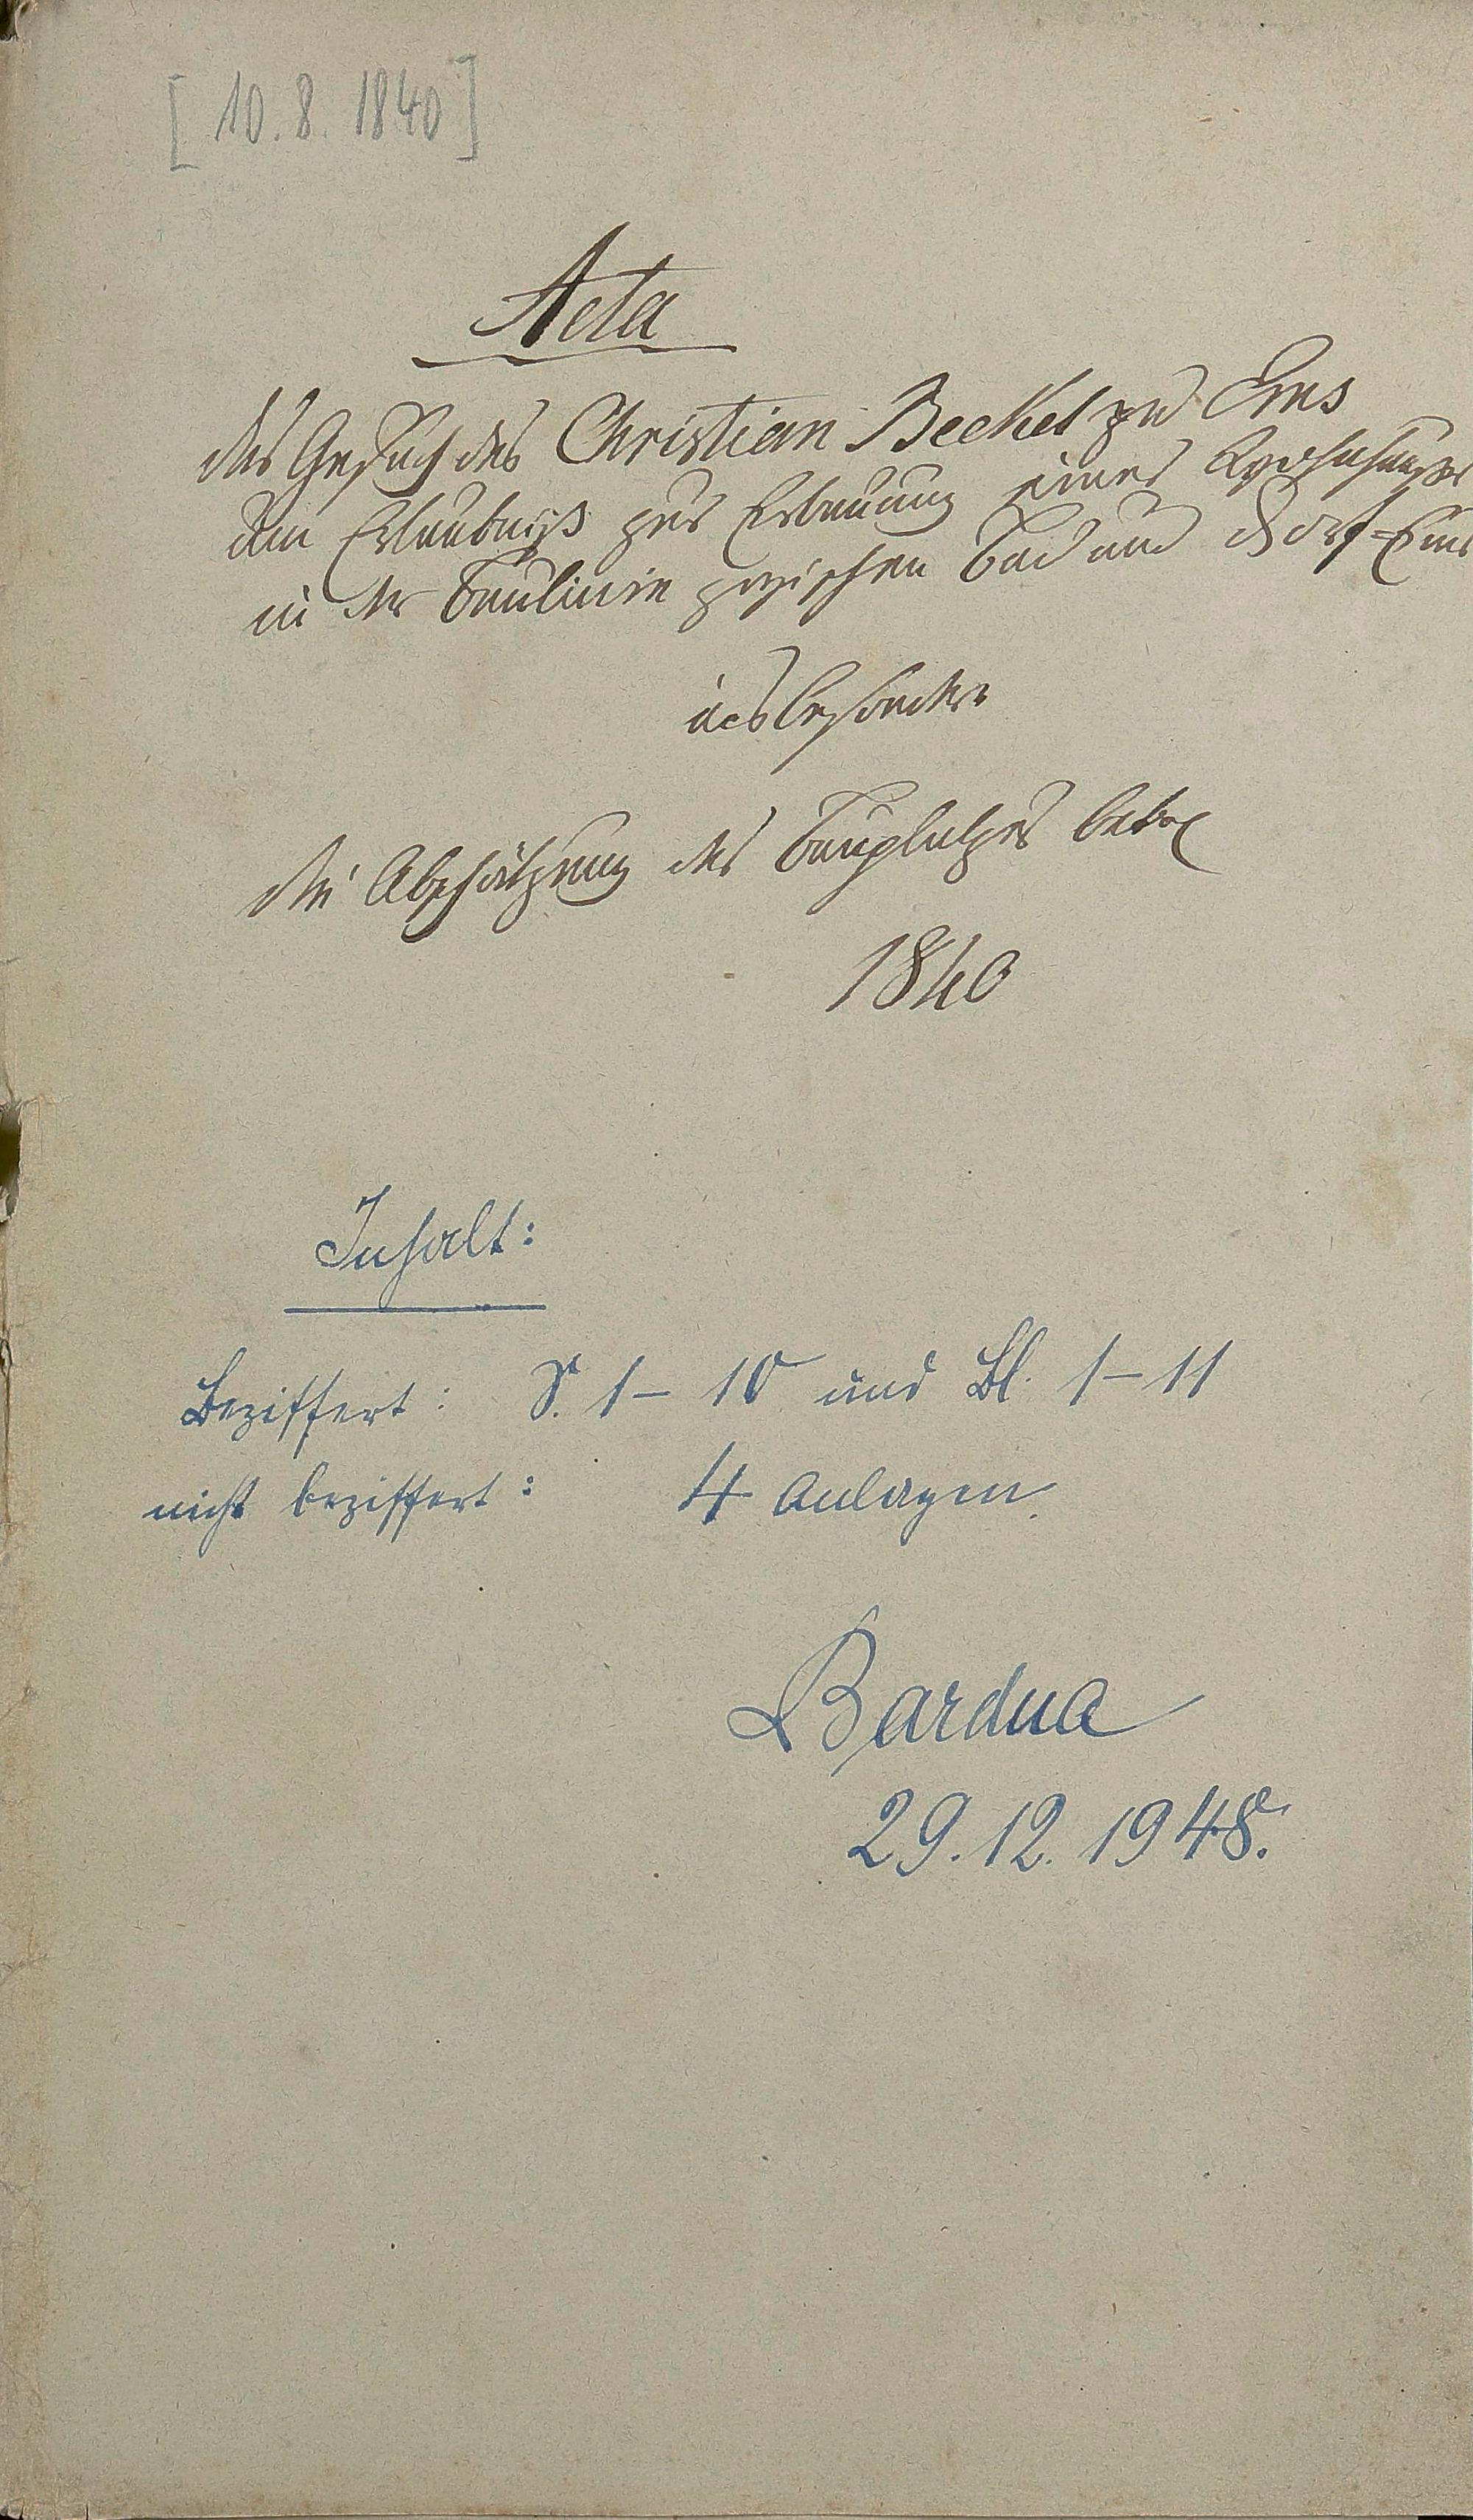 [10. 8. 1840]
Acta
das Gesuch des Christian Beckel zu Ems
um Erlaubniß zur Erbauung eines Wohnhauses
in der Baulinie zwischen Bad und Dorf-Ems
insbesondere
die Abschätzung des Bauplatzes betr
1840
Inhalt:
Beziffert: S. 1 - 10 und Bl. 1 - 11
nicht beziffert: 4 Anlagen.
Bardua
29.12.1948.